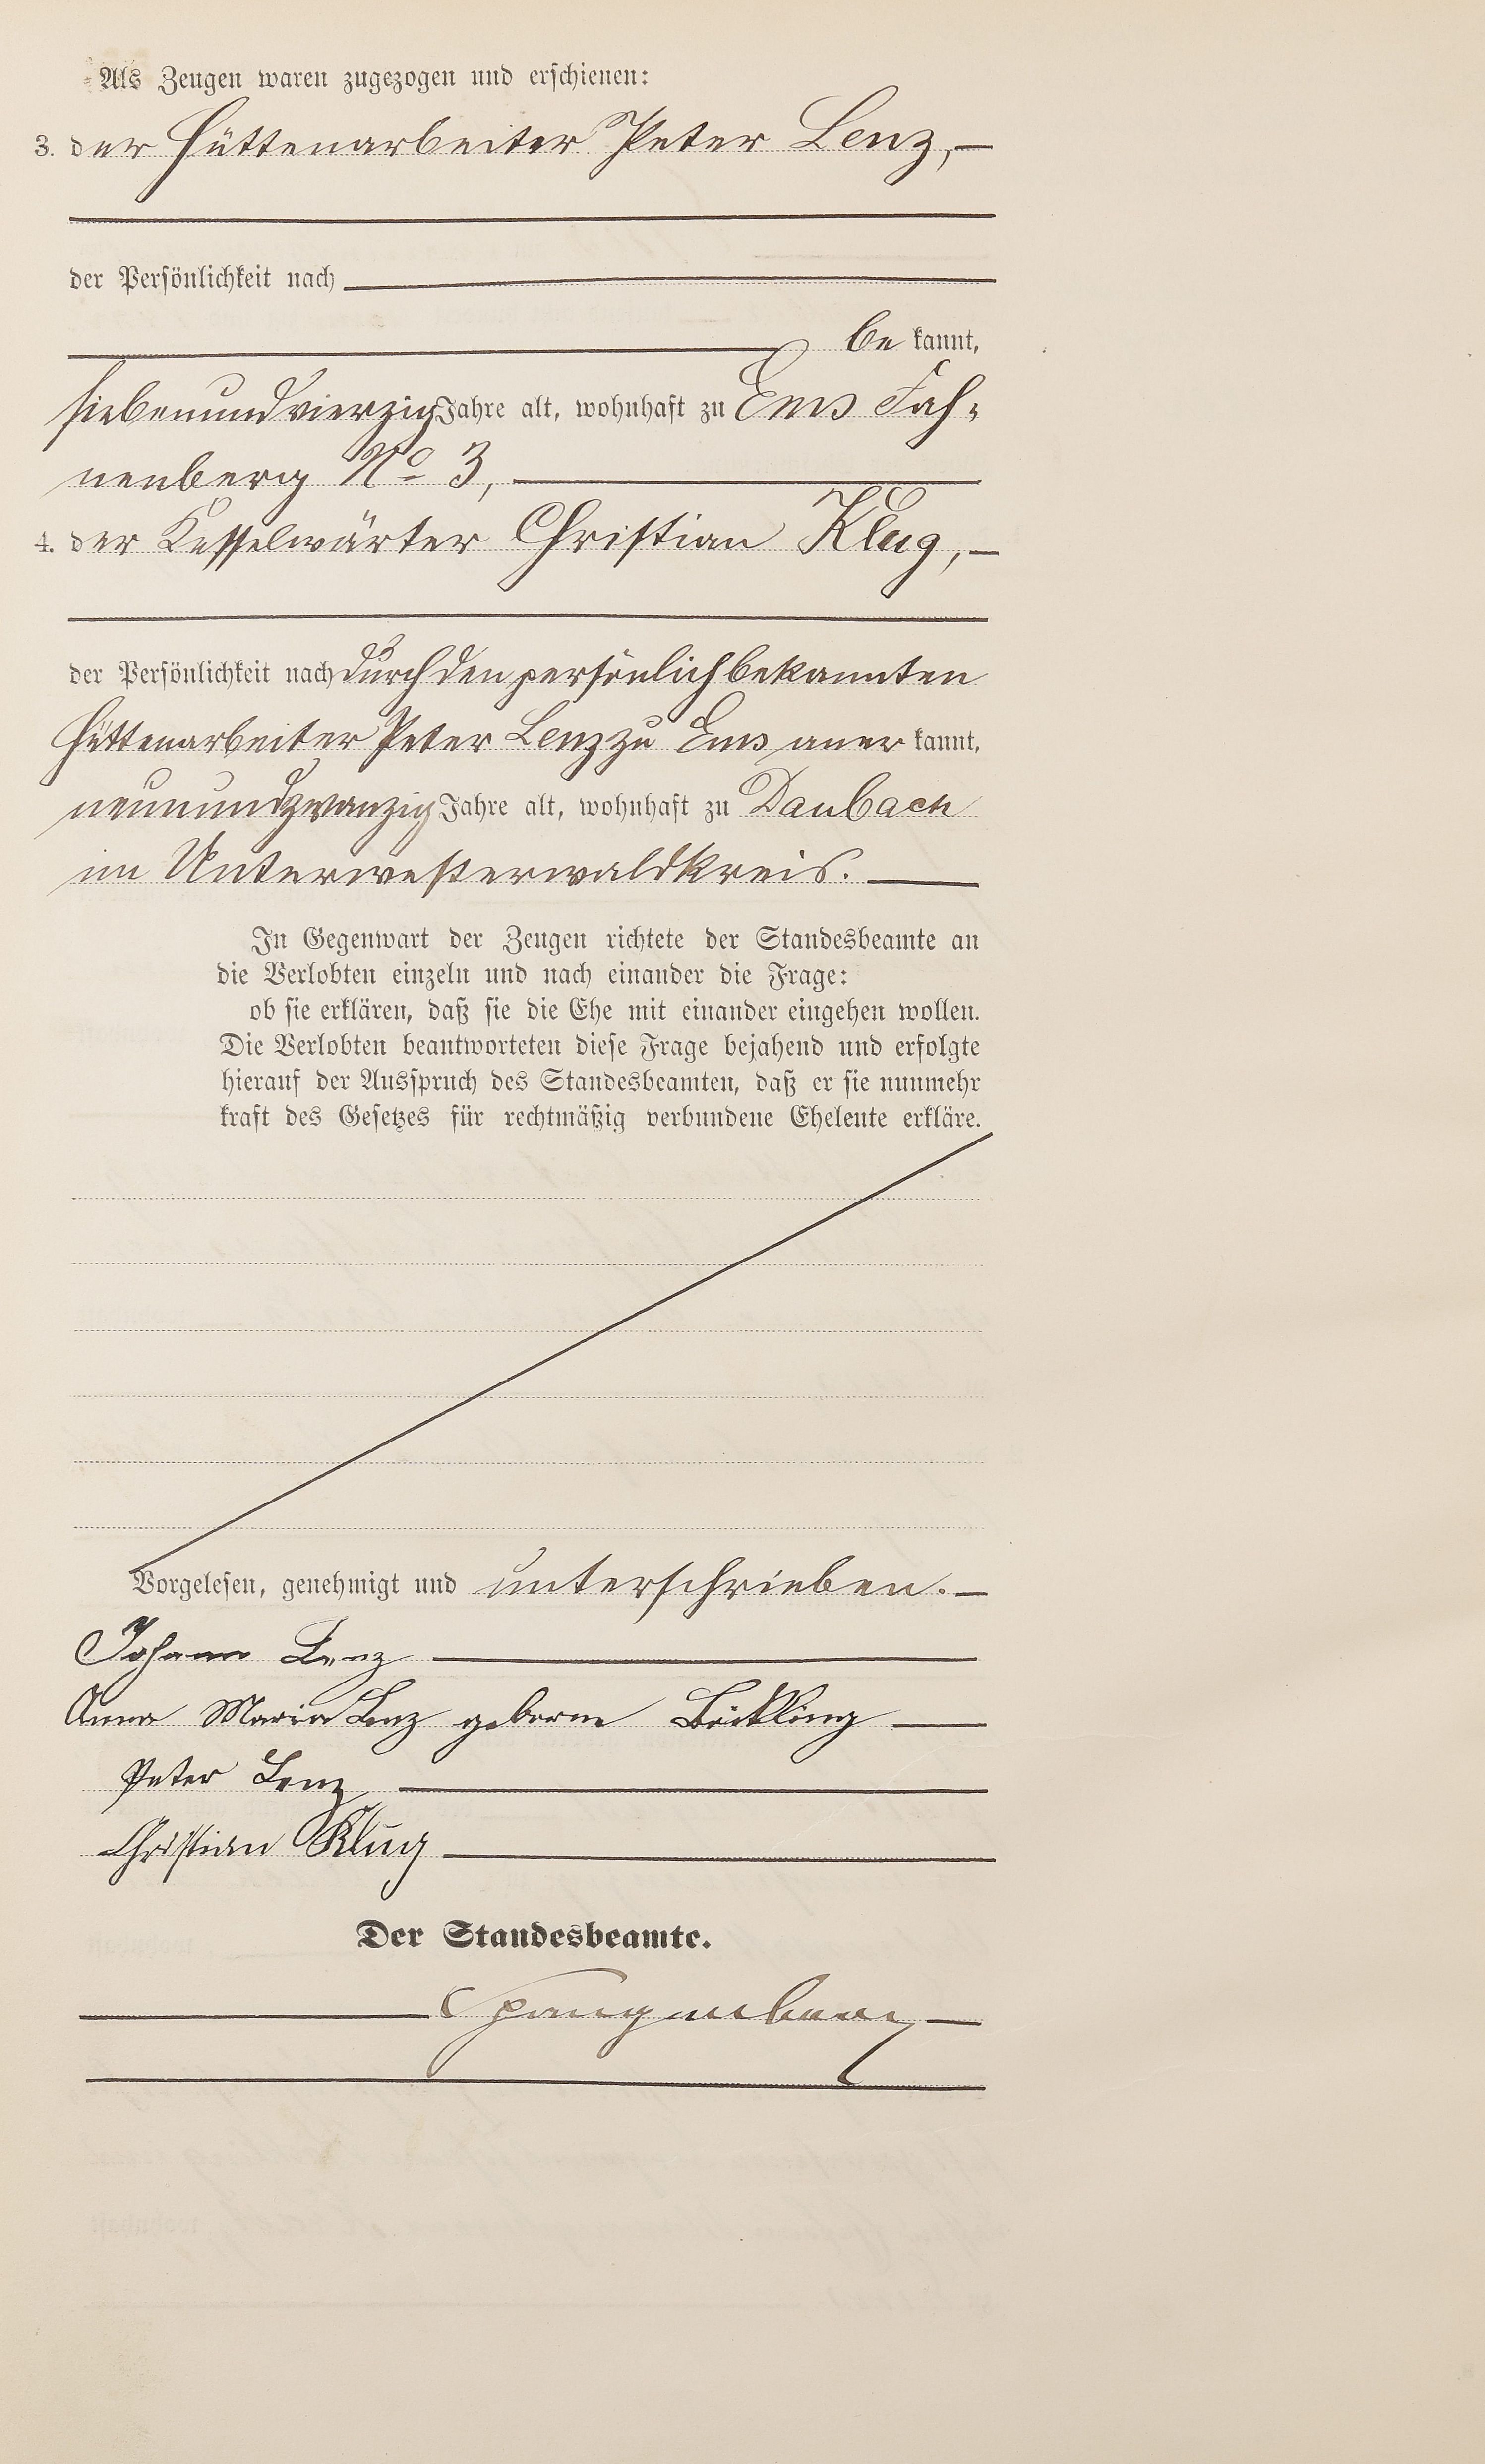 Als Zeugen waren zugezogen und erschienen:
3. der Hüttenarbeiter Peter Lenz, —
der Persönlichkeit nach
be kannt,
siebenundvierzig Jahre alt, wohnhaft zu Ems Fah-
nenberg No 3,
4. der Kesselwärter Christian Klug, —
der Persönlichkeit nach durch den persönlich bekannten
Hüttenarbeiter Peter Lenz zu Ems aner kannt,
neunundzwanzig Jahre alt, wohnhaft zu Daubach
im Unterwesterwaldkreis.
In Gegenwart der Zeugen richtete der Standesbeamte an
die Verlobten einzeln und nach einander die Frage:
ob sie erklären, daß sie die Ehe mit einander eingehen wollen.
Die Verlobten beantworteten diese Frage bejahend und erfolgte
hierauf der Ausspruch des Standesbeamten, daß er sie nunmehr
kraft des Gesetzes für rechtmäßig verbundene Eheleute erkläre.
Vorgelesen, genehmigt und unterschrieben. —
Johann Lenz
Anna Maria Lenz geborne Böckling
Peter Lenz
Christian Klug
Der Standesbeamte.
Spangenberg